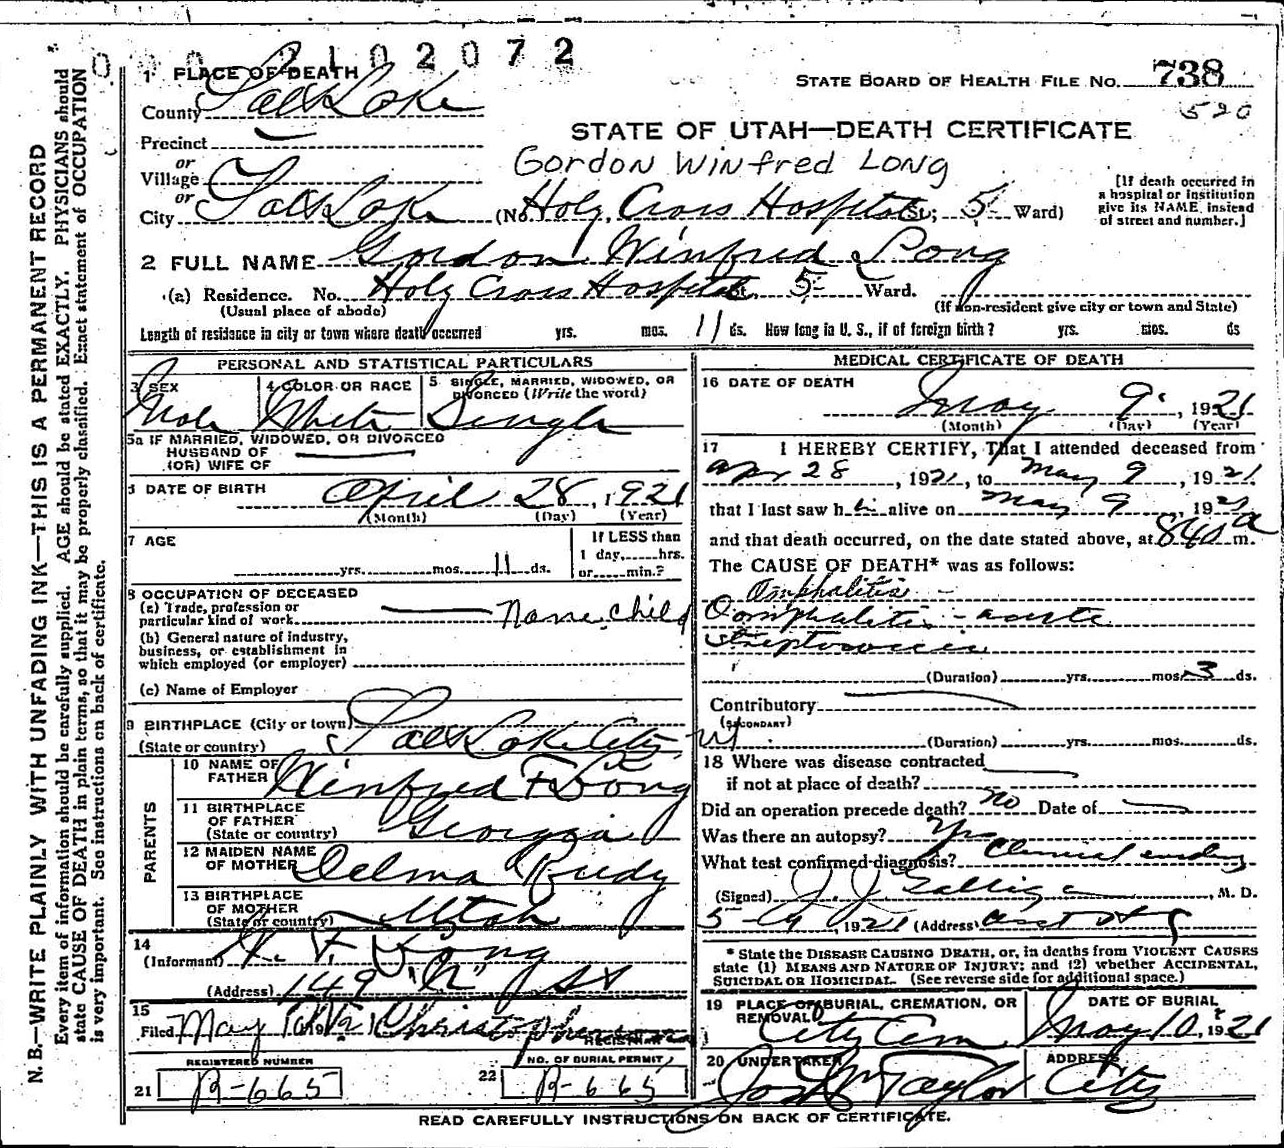 0 0 2 1 0 2 0 7 2
STATE BOARD OF HEALTH FILE NO. 738
520
1 PLACE OF DEATH
County Salt Lake
STATE OF UTAH—DEATH CERTIFICATE
Precinct
or
Village
Gordon Winfred Long
or
City Salt Lake (No. Holy Cross Hospital St; 5 Ward)
[If death occurred in
a hospital or institution
give its NAME instead
of street and number.]
2 FULL NAME Gordon Winfred Long
(a) Residence. No. Holy Cross Hospital St. 5 Ward.
(Usual place of abode) (If non-resident give city or town and State)
Length of residence in city or town where death occurred yrs. mos. 11 ds. How long in U. S., if of foreign birth? yrs. mos. ds
PERSONAL AND STATISTICAL PARTICULARS
3 SEX Male
4 COLOR OR RACE White
5 SINGLE, MARRIED, WIDOWED, OR
DIVORCED (Write the word)
Single
5a IF MARRIED, WIDOWED, OR DIVORCED
HUSBAND OF
(OR) WIFE OF
6 DATE OF BIRTH April 28, 1921
(Month) (Day) (Year)
7 AGE
yrs. mos. 11 ds.
If LESS than
1 day, hrs.
or min.?
8 OCCUPATION OF DECEASED
(a) Trade, profession or
particular kind of work None, child
(b) General nature of industry,
business, or establishment in
which employed (or employer)
(c) Name of Employer
9 BIRTHPLACE (City or town)
(State or country) Salt Lake City Ut
PARENTS
10 NAME OF
FATHER Winfred F Long
11 BIRTHPLACE
OF FATHER
(State or country) Georgia
12 MAIDEN NAME
OF MOTHER Delma Rudy
13 BIRTHPLACE
OF MOTHER
(State or country) Utah
14
(Informant) W. F. Long
(Address) 149 St
15
Filed May 192 Christopherson
REGISTRAR
REGISTERED NUMBER
21 R-665
NO. OF BURIAL PERMIT
22 R-665
MEDICAL CERTIFICATE OF DEATH
16 DATE OF DEATH
May 9, 1921
(Month) (Day) (Year)
17 I HEREBY CERTIFY, That I attended deceased from
Apr 28, 1921, to May 9, 1921
that I last saw him alive on May 9, 1921
and that death occurred, on the date stated above, at 840 a m.
The CAUSE OF DEATH* was as follows:
Omphalitis -
Omphalitis - acute
Streptococcic
(Duration) yrs. mos. 3 ds.
Contributory
(SECONDARY)
(Duration) yrs. mos. ds.
18 Where was disease contracted
if not at place of death?
Did an operation precede death? no Date of
Was there an autopsy? Yes
What test confirmed diagnosis? Clinical
(Signed) J. J. Galligan, M. D.
5-9, 1921 (Address)
* State the DISEASE CAUSING DEATH, or, in deaths from VIOLENT CAUSES
state (1) MEANS AND NATURE OF INJURY; and (2) whether ACCIDENTAL,
SUICIDAL OR HOMICIDAL. (See reverse side for additional space.)
19 PLACE OF BURIAL, CREMATION, OR
REMOVAL
City Cem
DATE OF BURIAL
May 10, 1921
20 UNDERTAKER
Jos Wm Taylor
ADDRESS
City
READ CAREFULLY INSTRUCTIONS ON BACK OF CERTIFICATE.
N. B.—WRITE PLAINLY WITH UNFADING INK—THIS IS A PERMANENT RECORD
Every item of information should be carefully supplied. AGE should be stated EXACTLY. PHYSICIANS should
state CAUSE OF DEATH in plain terms, so that it may be properly classified. Exact statement of OCCUPATION
is very important. See instructions on back of certificate.